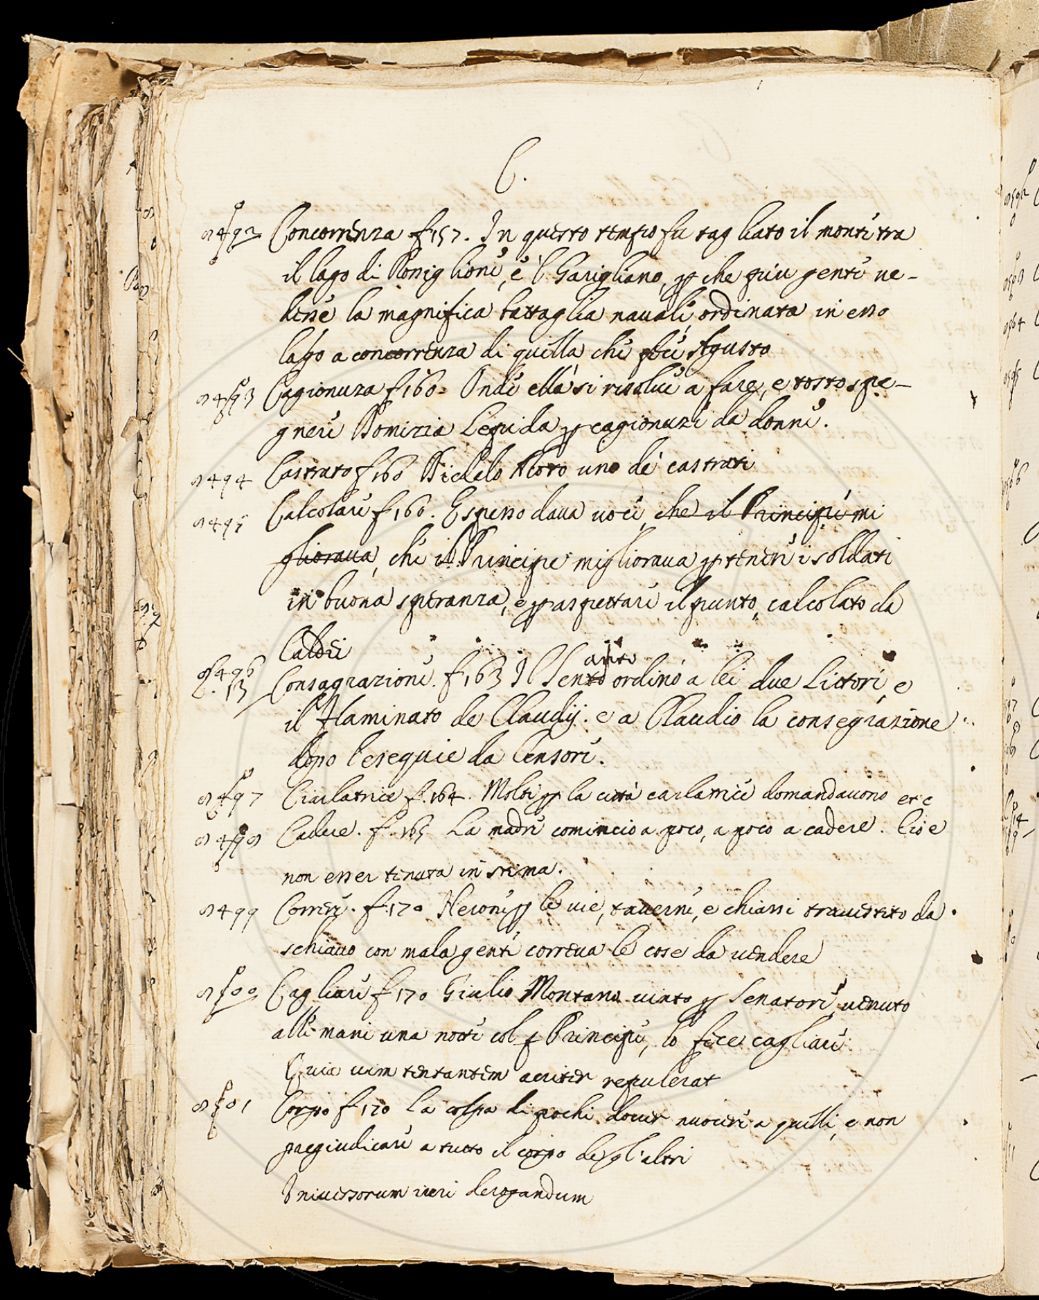 C.
8492 Concorrenza f 157. In questo tempo fu tagliato il monte tra
il lago di Roniglione, e 'l Garigliano, p che piu gente ve-
desse la magnifica battaglia navale ordinata in esso
lago a concorrenza di quella che fece Agusto
8493 Cagionuza f 160. Onde ella si risolue a fare, e tosto spe-
gnere Domizia Lepida p cagionuze da donne.
8494 Castrato f 160 Aloto uno de castrati
8495 Calcolare f 160. Espesso daua uoce che il Principe mi
gliorava, che il Principe migliorava p tenere i soldati
in buona speranza, e p aspettare il punto calcolato da
Caldei
8496 Consagrazione. f 163 Il Senato ordinò a lei due Littori, e
il Flaminato de Claudij. e a Claudio la consegrazione
dopo l'esequie da Censori.
8497 Ciarlatrice f. 164. Molti p la città ciarlatrice domandavono etc
8498 Cadere. f. 165 La madre cominciò a poco, a poco a cadere. Cioe
non esser tenuta in stima.
8499 Correre. f. 170 Nerone p le vie, taverne, e chiassi travestito da
schiavo con mala gente correva le cose da vendere
8500 Cagliare f 170 Giulio Montano Senatore, venuto
alle mani una notte col Principe, lo fece cagliare.
Quia vim tentantem acriter repulerat
8501 Corpo f 170 La colpa di pochi dover nuocere a quelli, e non
pregiudicare a tutto il corpo degl'altri
Universorum iuri derogandum